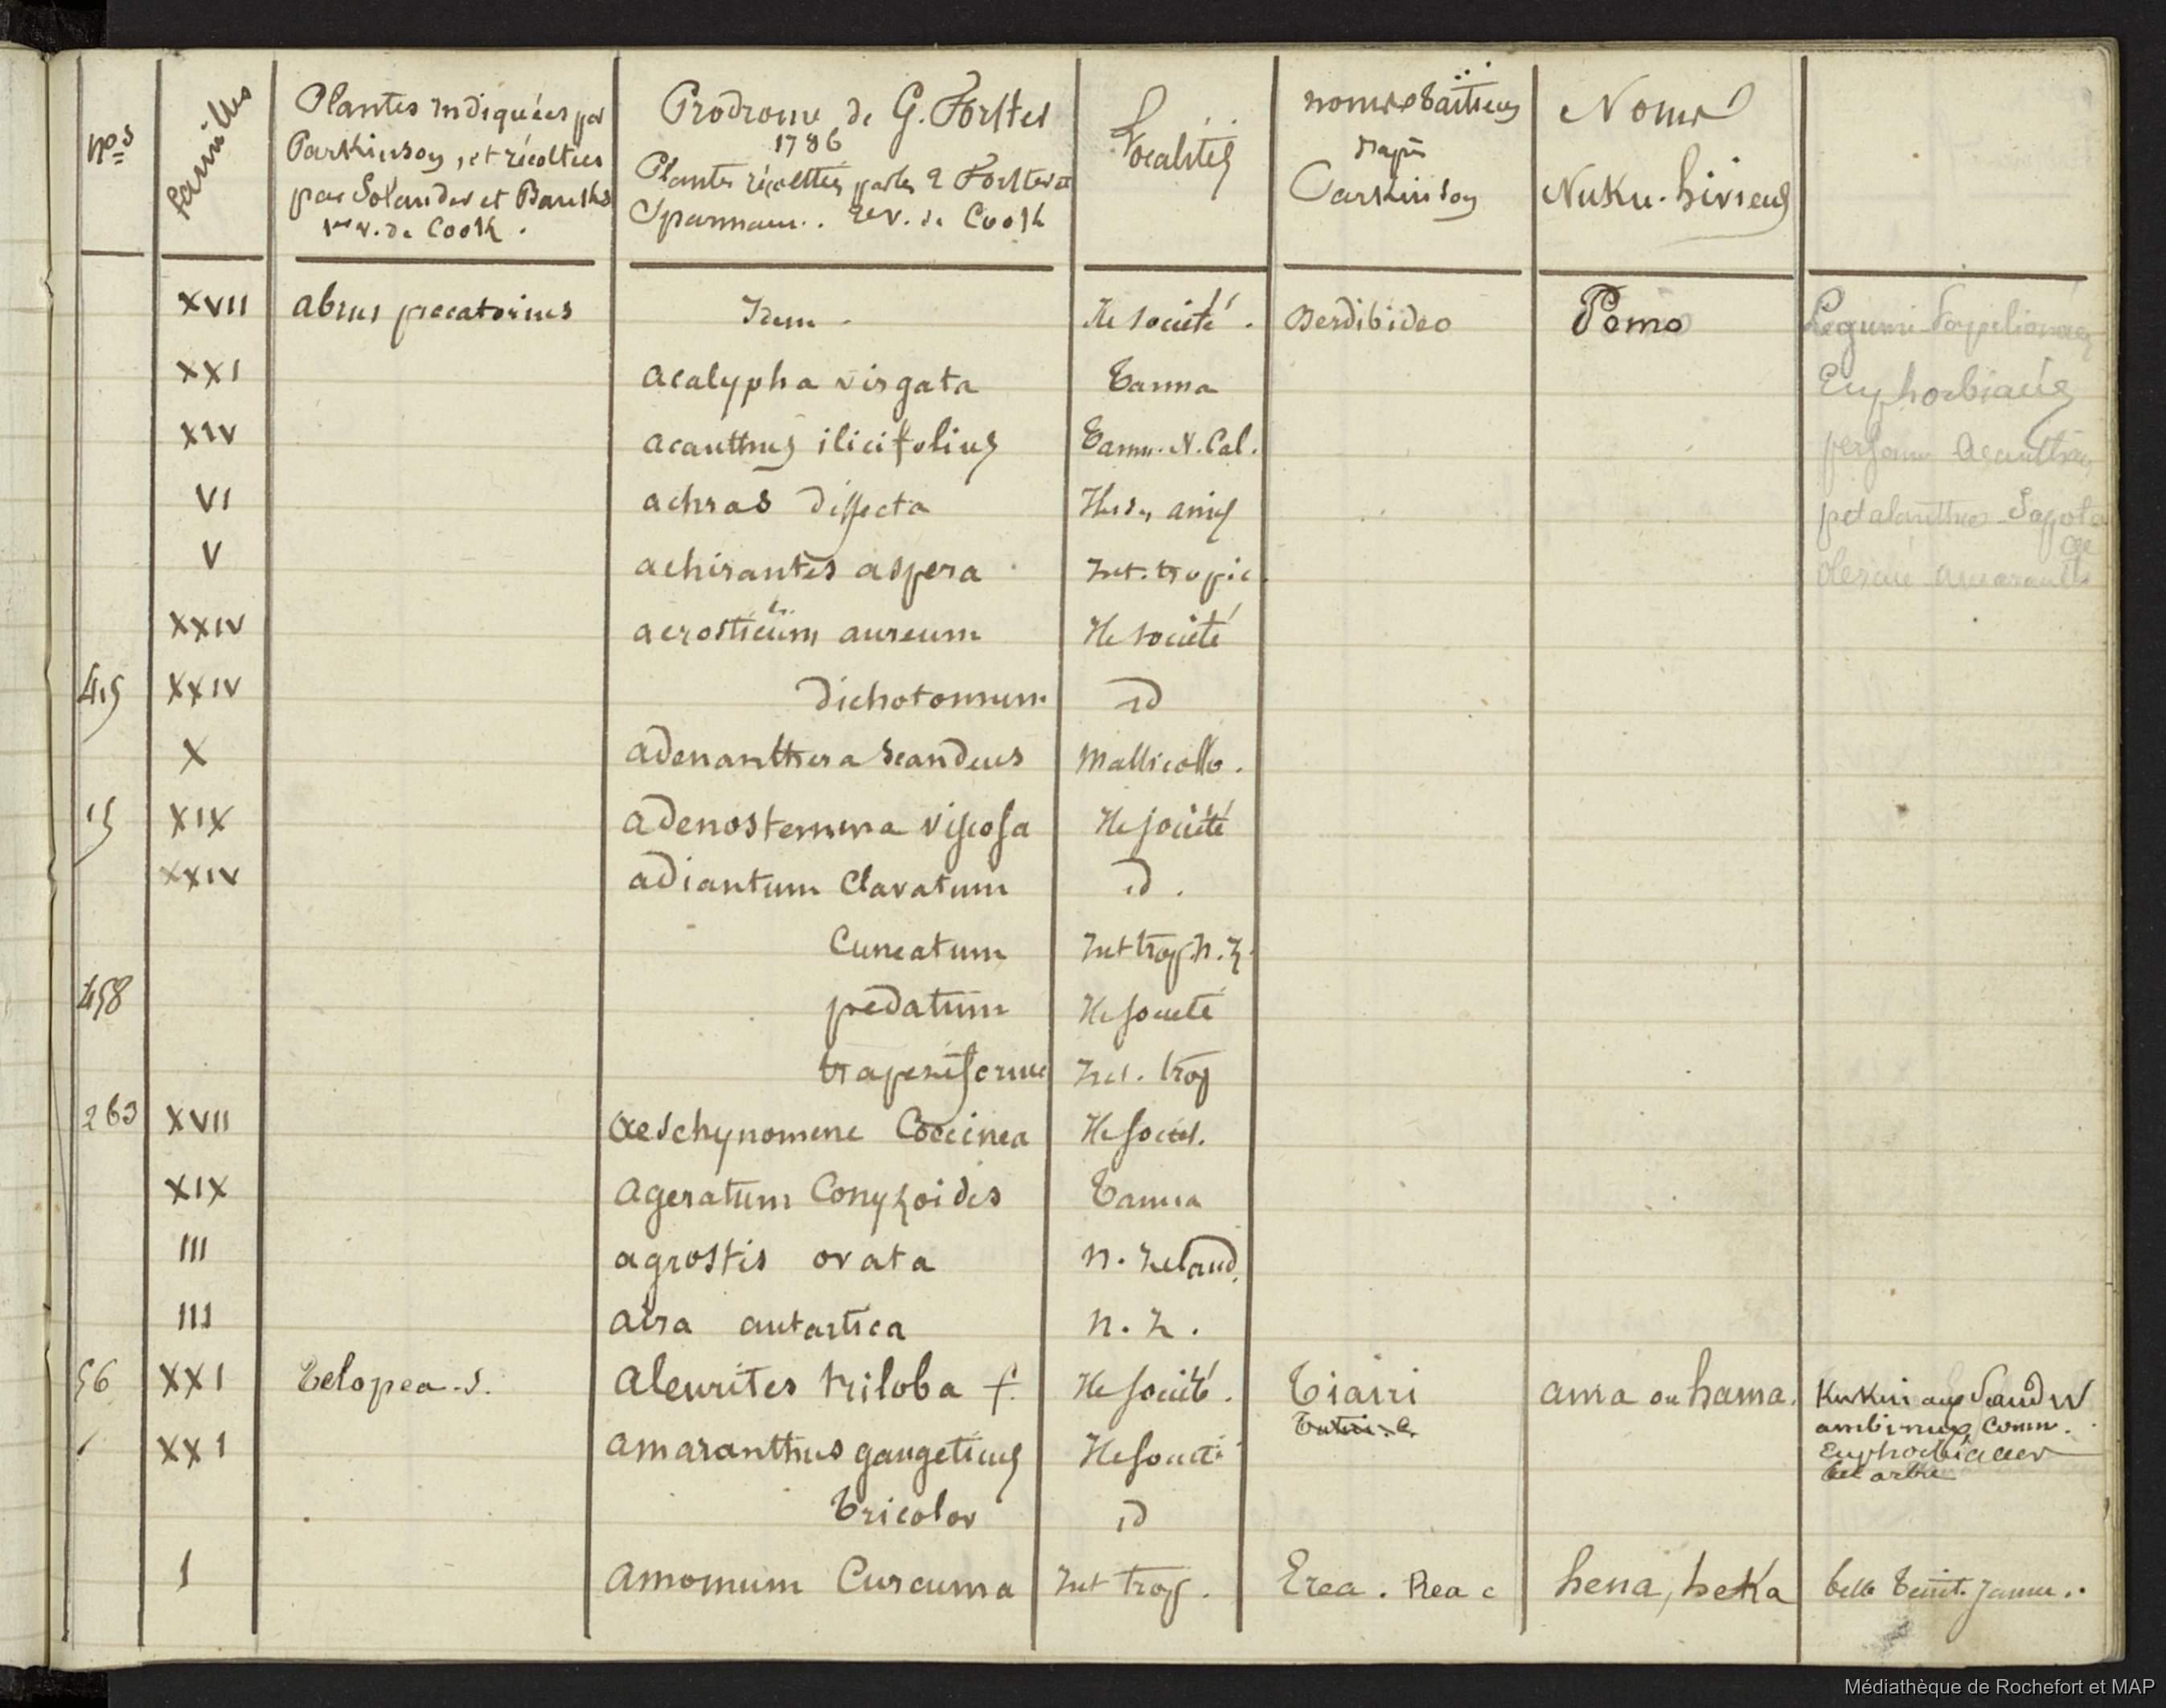 nos
familles
Plantes indiquées par
Parkinson, et récoltées
par Solander et Banks
1er v. de Cook.
Prodrome de G. Forster
1786
Plantes récoltées par les 2 Forster et
Sparmann. 2e v. de Cook
Localités
noms taïtiens
d'après
Parkinson
Noms
Nuku-hiviens
XVII abrus precatorius Idem. Ile société. Perdibideo Pomo Legumi-Papelionacées
XXI acalypha virgata Tanna Euphorbiacés
XIV acanthus ilicifolius Tann. N. Cal. person acanthac
VI achras dissecta Iles des amis petalanthes-Sapota
cée
V achirantes aspera Int. tropic.
XXIV acrosticum aureum Ile société
415 XXIV dichotomum id
X adenanthera scandens Mallicollo.
15 XIX adenostemma viscosa Ile société
XXIV adiantum clavatum id.
cuneatum Int trop. n. z.
458 pedatum Ile société
trapeziforme Int. trop
263 XVII aeschynomene Coccinea Ile sociét.
XIX ageratum Conyzoides Tanna
III agrostis ovata n. zeland.
III aira antartica n. z.
56 XXI Telopea. S. aleurites triloba f. Ile société. Tiairi ama ou hama. Kukui aux Sandw
Tutui. C. ambinux Comm.
XXI amaranthus gangeticus Ile société Euphorbiacées
bel arbre
Tricolor id
I amomum Curcuma Int trop. Erea. Rea c hena, heka belle teint. jaune.
Médiathèque de Rochefort et MAP